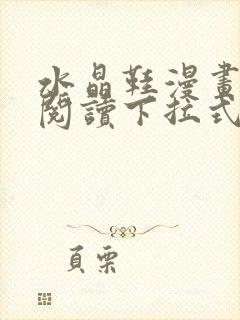 水晶鞋漫畫
閱讀下拉式
頁栗